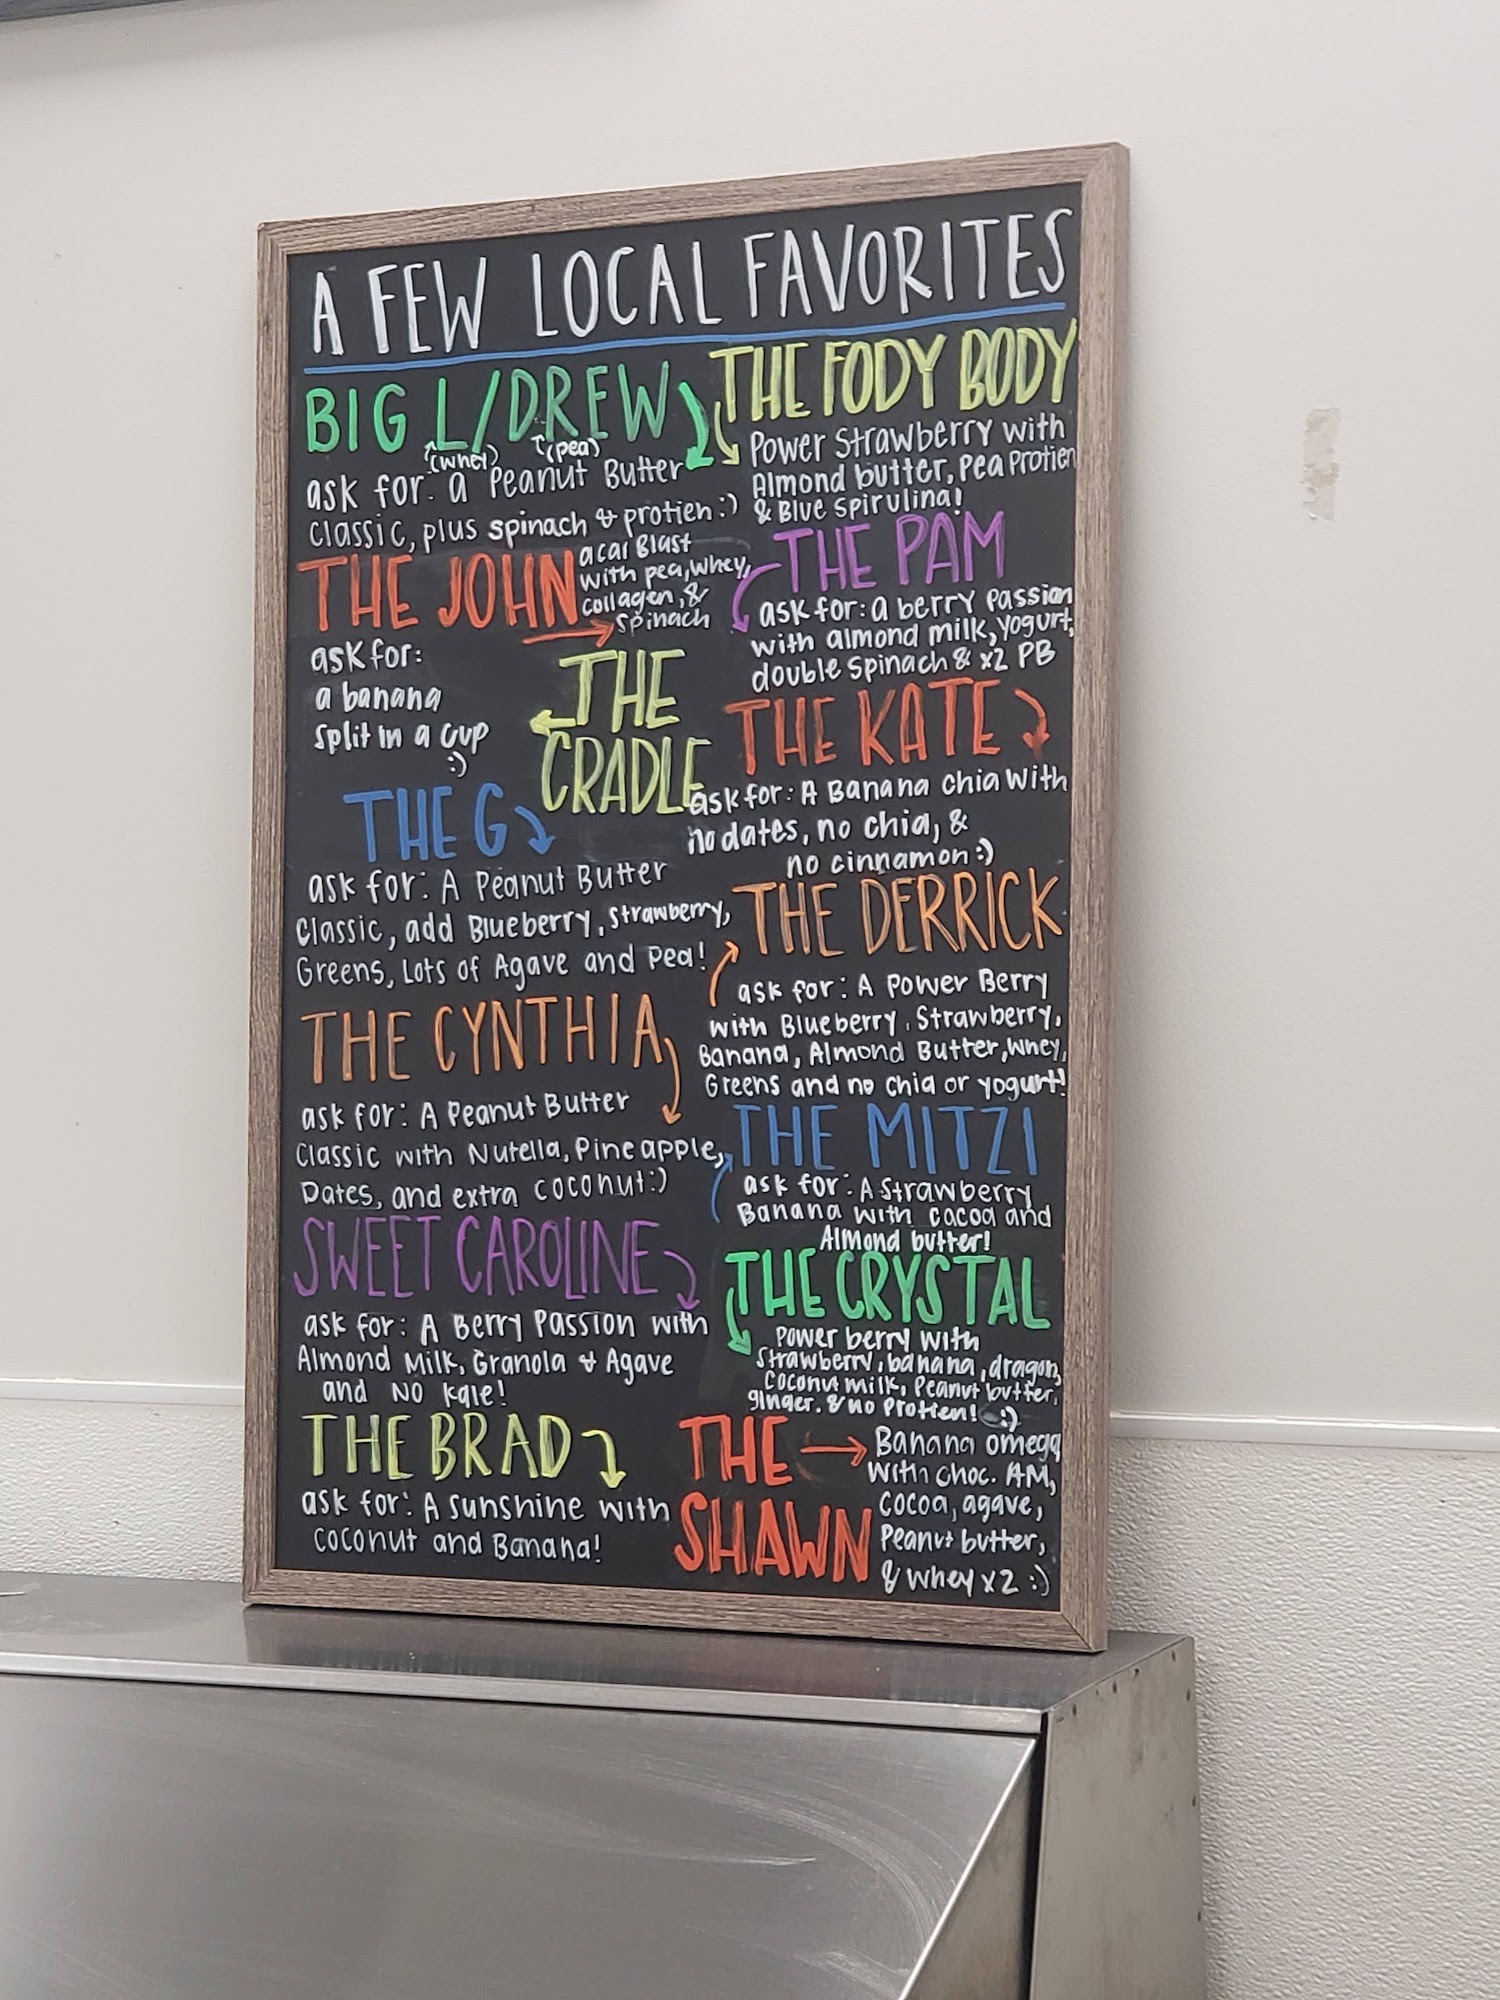 A FEW LOCAL FAVORITES
BIG L/DREW
(whey) (pea)
ask for: a Peanut Butter
Classic, plus spinach & protien :)
THE JOHN
acai Blast
with pea, whey,
collagen, &
spinach
THE CRADLE
ask for:
a banana
split in a cup
:)
THE G
ask for: A Peanut Butter
Classic, add Blueberry, Strawberry,
Greens, Lots of Agave and Pea!
THE CYNTHIA
ask for: A Peanut Butter
Classic with Nutella, Pineapple,
Dates, and extra coconut :)
SWEET CAROLINE
ask for: A Berry Passion with
Almond Milk, Granola & Agave
and NO kale!
THE BRAD
ask for: A sunshine with
coconut and Banana!
THE FODY BODY
Power Strawberry with
Almond butter, Pea Protien
& Blue spirulina!
THE PAM
ask for: a berry passion
with almond milk, yogurt,
double spinach & x2 PB
THE KATE
ask for: A Banana chia with
no dates, no chia, &
no cinnamon :)
THE DERRICK
ask for: A Power Berry
with Blueberry, Strawberry,
Banana, Almond Butter, Whey,
Greens and no chia or yogurt!
THE MITZI
ask for: A Strawberry
Banana with cocoa and
Almond butter!
THE CRYSTAL
Power berry with
Strawberry, banana, dragon,
coconut milk, Peanut butter,
ginger. & no Protien! :)
THE
SHAWN
Banana omega
with choc. AM,
cocoa, agave,
Peanut butter,
& whey x2 :)